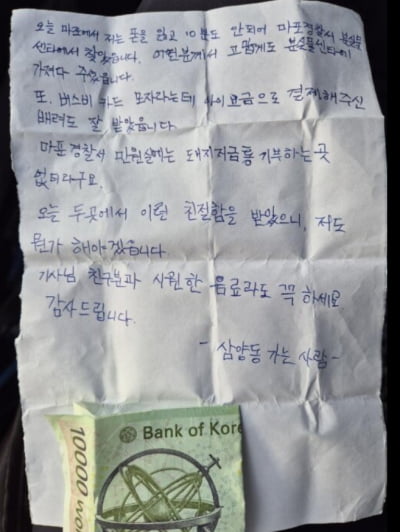 오늘 마포에서 저는 폰을 잃고 10분도 안되어 마포경찰서 분실물
센타에서 찾았습니다. 어떤분께서 고맙게도 분실물센타에
가져다 주셨습니다.
또. 버스비 카드 모자라는데 아이요금으로 결제해주신
배려도 잘 받았읍니다.
마포경찰서 민원실에는 돼지저금통 기부하는곳
없더라구요.
오늘 두곳에서 이런 친절함을 받았으니, 저도
뭔가 해야겠읍니다.
기사님 친구분과 시원한 음료라도 꼭 하세요.
감사드립니다.
- 삼양동 가는 사람 -
Bank of Kore
10000 wo